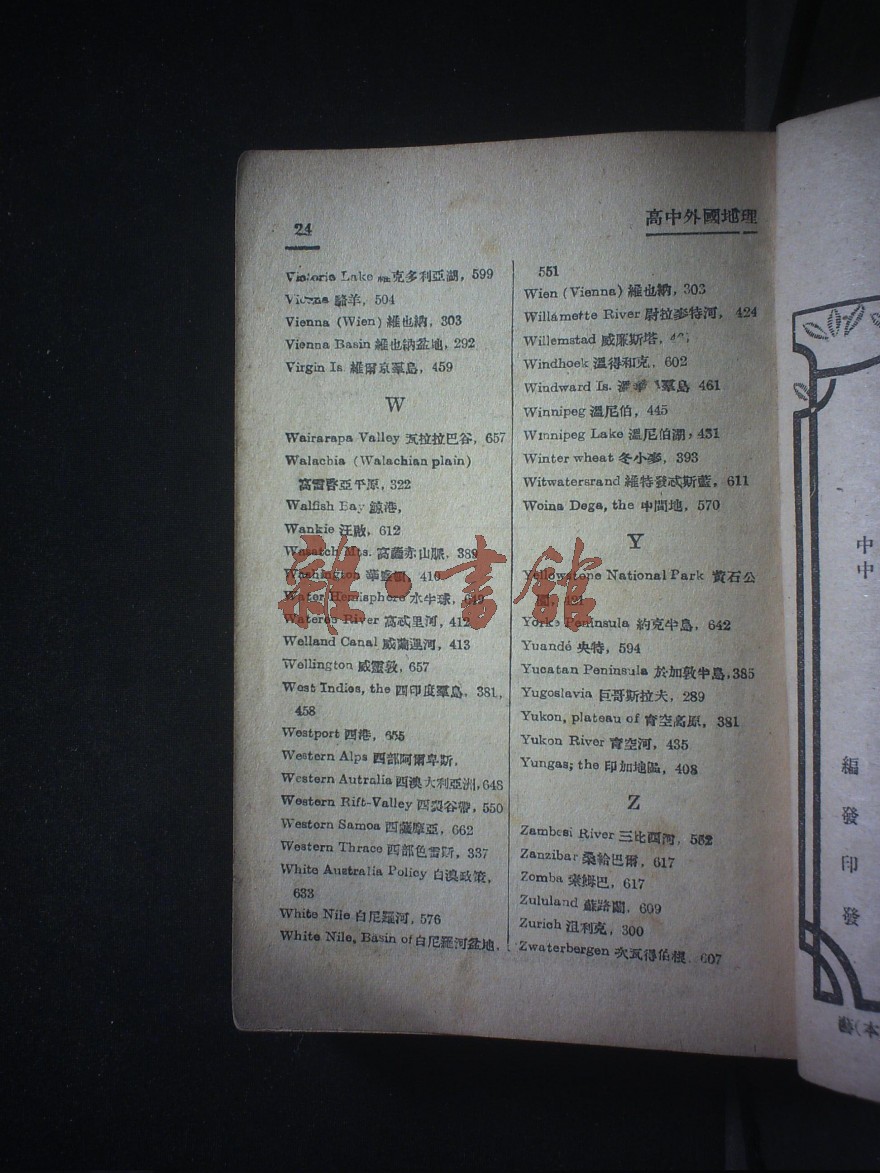 24
高中外國地理
Victoria Lake 維克多利亞湖, 599
Vicuna 駱羊, 504
Vienna (Wien) 維也納, 303
Vienna Basin 維也納盆地, 292
Virgin Is. 維爾京羣島, 459
W
Wairarapa Valley 瓦拉拉巴谷, 657
Walachia (Walachian plain)
亞平原, 322
Walfish Bay 鯨港,
Wankie 汪啟, 612
Wasatch Mts. 山脈, 389
Washington 華盛頓, 410
Water Hemisphere 水半球, 649
Wateree River 窩忒里河, 412
Welland Canal 威蘭運河, 413
Wellington 威靈敦, 657
West Indies, the 西印度羣島, 381,
458
Westport 西港, 655
Western Alps 西部阿爾卑斯,
Western Autralia 西澳大利亞洲, 648
Western Rift-Valley 西裂谷帶, 550
Western Samoa 西薩摩亞, 662
Western Thrace 西部色雷斯, 337
White Australia Policy 白澳政策,
633
White Nile 白尼羅河, 576
White Nile, Basin of 白尼羅河盆地,
551
Wien (Vienna) 維也納, 303
Willamette River 尉拉麥特河, 424
Willemstad 威廉斯塔,
Windhoek 溫得和克, 602
Windward Is. 羣島 461
Winnipeg 溫尼伯, 445
Winnipeg Lake 溫尼伯湖, 431
Winter wheat 冬小麥, 393
Witwatersrand 維特發忒斯藍, 611
Woina Dega, the 中間地, 570
Y
Yellowstone National Park 黃石公
園, 421
Yorke Peninsula 約克半島, 642
Yuandé 央特, 594
Yucatan Peninsula 於加敦半島, 385
Yugoslavia 巨哥斯拉夫, 289
Yukon, plateau of 育空高原, 381
Yukon River 育空河, 435
Yungas; the 印加地區, 408
Z
Zambesi River 三比西河, 552
Zanzibar 桑給巴爾, 617
Zomba 索姆巴, 617
Zululand 蘇路蘭, 609
Zurich 沮利克, 300
Zwaterbergen 次瓦得伯根, 607
雜·書館
中中
編
發
印
發